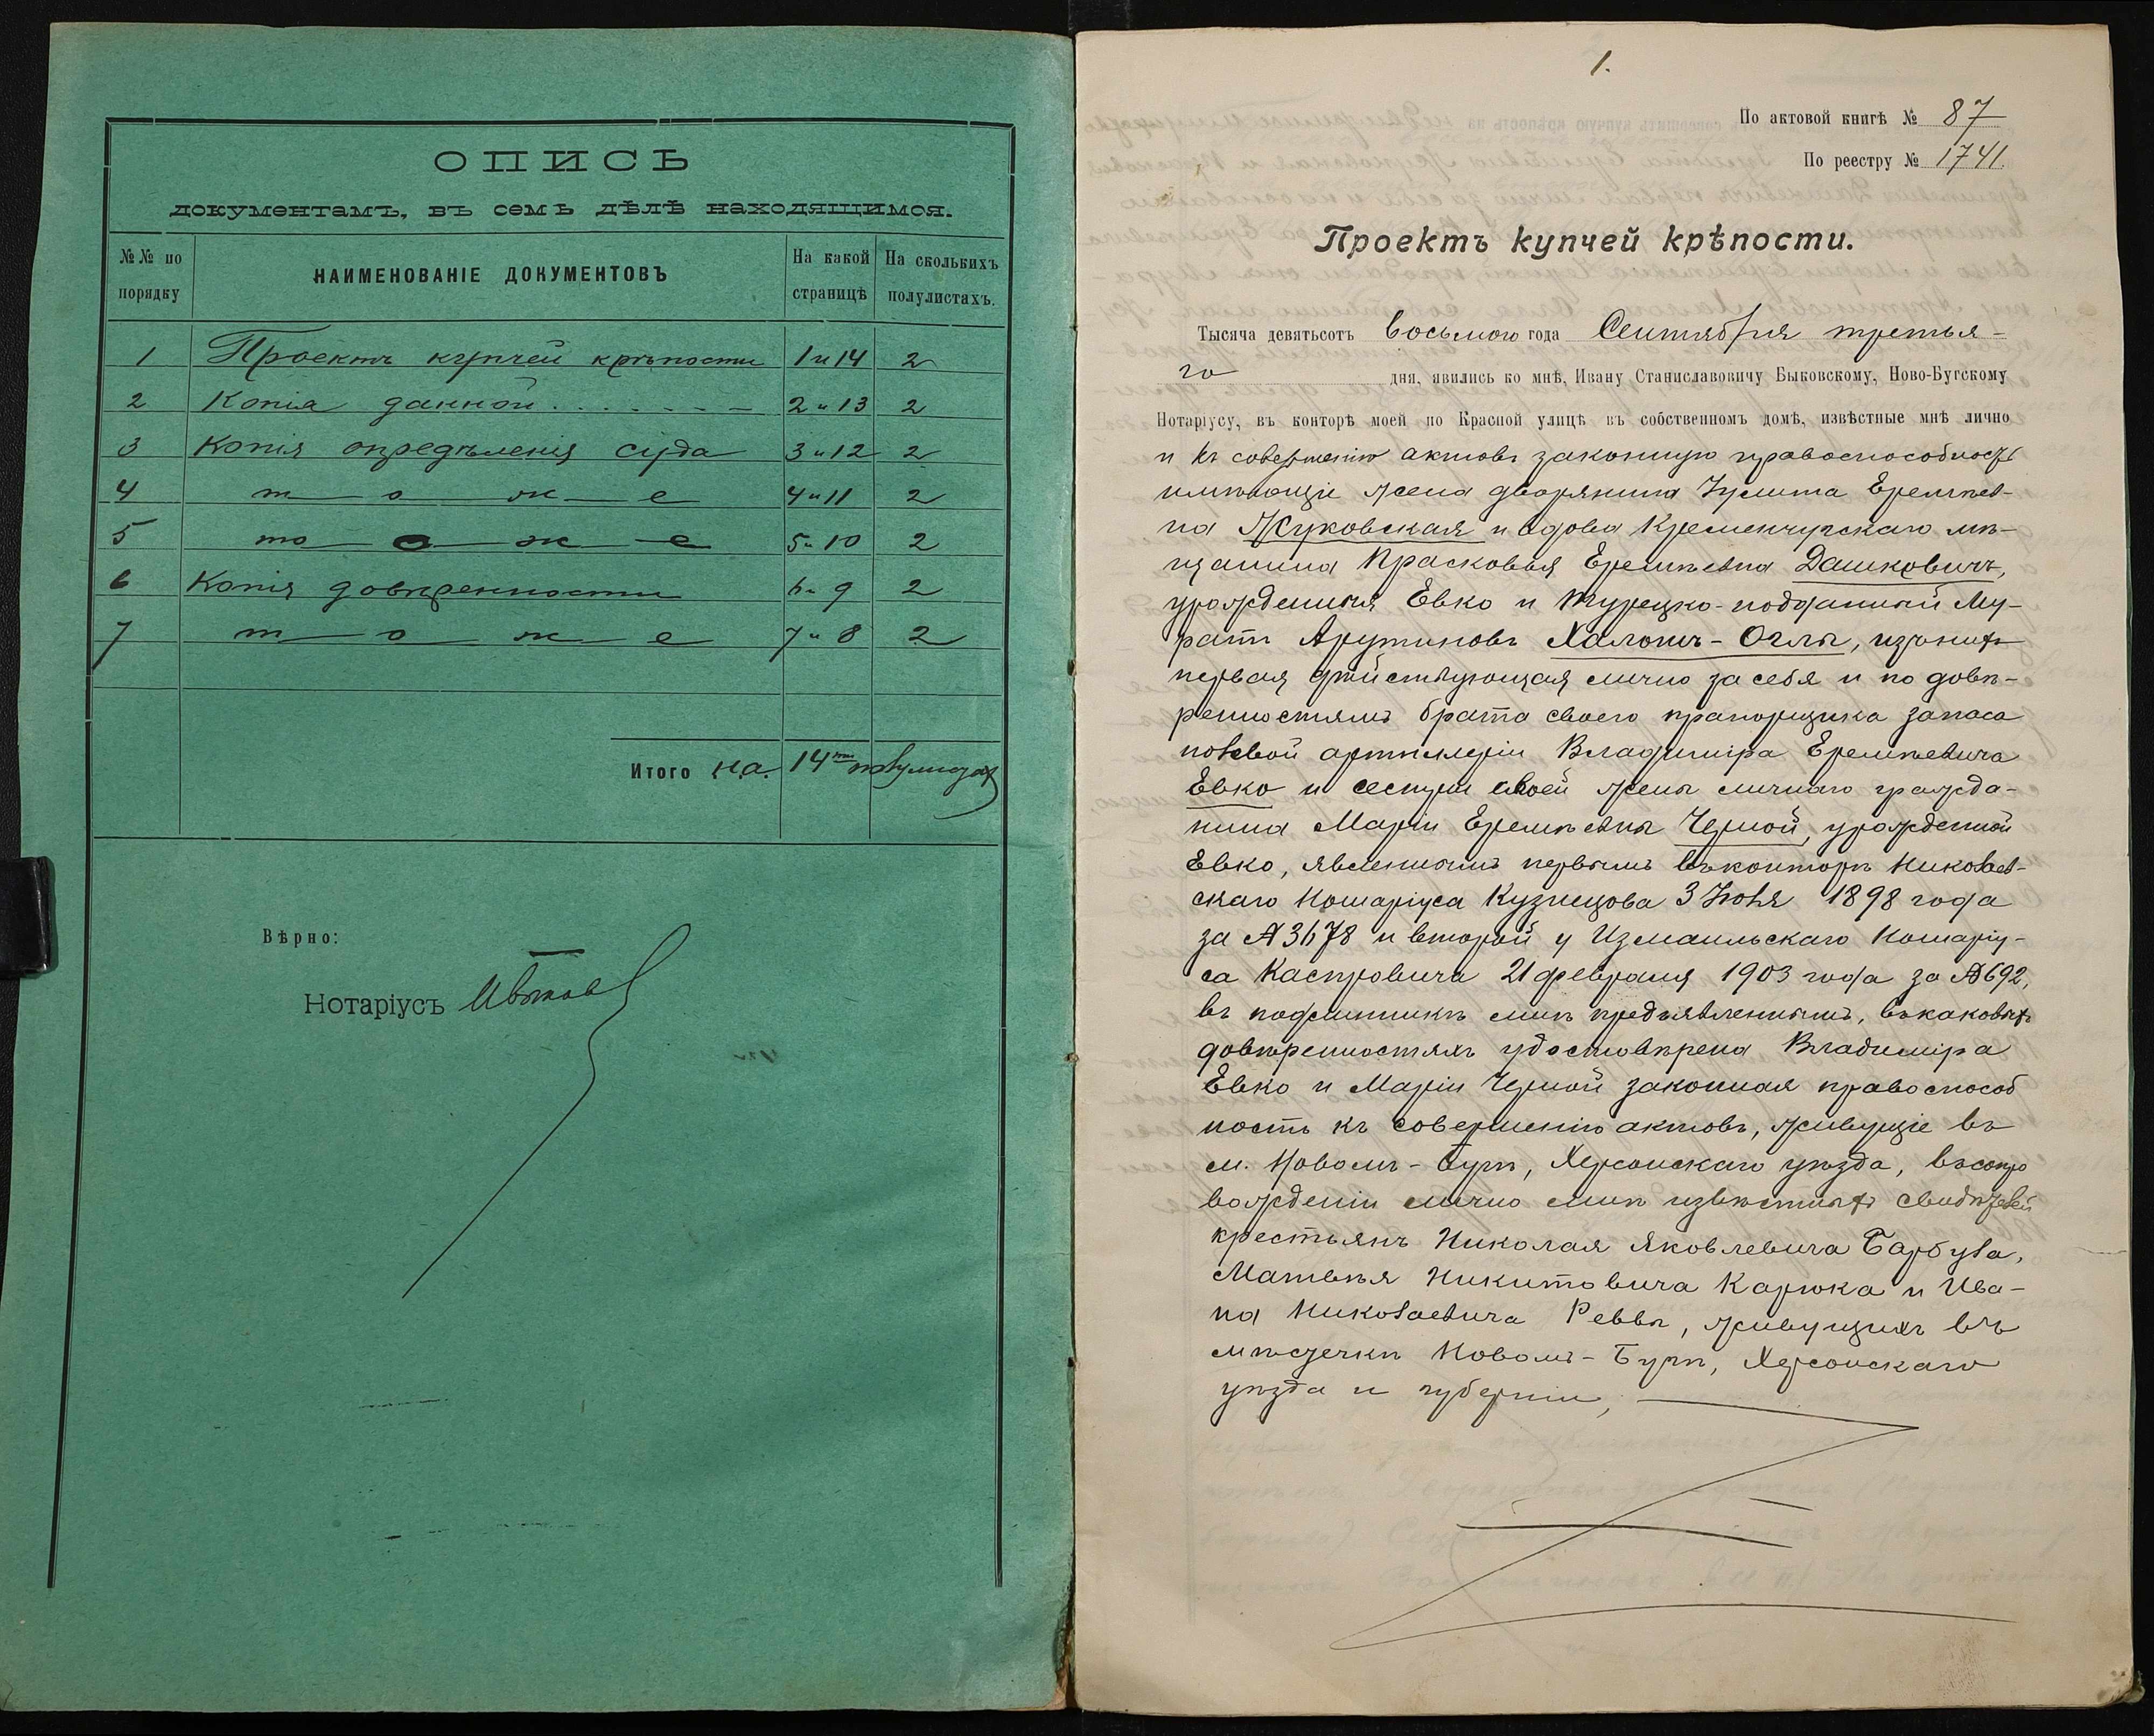 ОПИСЬ
документамъ, въ семъ дѣлѣ находящимся.
№№ по порядку
НАИМЕНОВАНІЕ ДОКУМЕНТОВЪ
На какой страницѣ
На сколькихъ полулистахъ.
1 Проектъ купчей крѣпости 1 и 14 2
2 Копія данной 2 и 13 2
3 Копія опредѣленія суда 3 и 12 2
4 тоже 4 и 11 2
5 тоже 5 и 10 2
6 Копія довѣренности 6 и 9 2
7 тоже 7 и 8 2
Итого на 14ти полулистах
Вѣрно:
Нотаріусъ
1.
По актовой книгѣ № 87
По реестру № 1741.
Проектъ купчей крѣпости.
Тысяча девятьсотъ восьмого года Сентября третья-
го дня, явились ко мнѣ, Ивану Станиславовичу Быковскому, Ново-Бугскому
Нотаріусу, въ конторѣ моей по Красной улицѣ въ собственномъ домѣ, извѣстные мнѣ лично
и къ совершенію актовъ законную правоспособность
имѣющіе жена дворянина Іулита Еремѣев-
на Жуковская и вдова Кременчугскаго мѣ-
щанина Прасковья Еремѣевна Дашковичъ,
урожденныя Евко и Турецко-подданный Му-
ратъ Арутиновъ Халопъ-Оглы, изъ нихъ
первая дѣйствующая лично за себя и по довѣ-
ренностямъ брата своего прапорщика запаса
полевой артиллеріи Владиміра Еремѣевича
Евко и сестры своей жены личнаго гражда-
нина Маріи Еремѣевны Черной, урожденной
Евко, явленнымъ первымъ въ конторѣ Николаев-
скаго Нотаріуса Кузнецова 3 Іюля 1898 года
за № 3678 и второй у Измаильскаго Нотаріу-
са Каспровича 21 февраля 1903 года за № 692,
въ подлинникѣ мнѣ предъявленнымъ, въ каковыхъ
довѣренностяхъ удостовѣрена Владиміра
Евко и Маріи Черной законная правоспособ
ность къ совершенію актовъ, живущіе въ
м. Новомъ-Бугѣ, Херсонскаго уѣзда, въ сопро
вожденіи лично мнѣ извѣстныхъ свидѣтелей
крестьянъ Николая Яковлевича Барбула,
Матвѣя Никитовича Карюка и Ива-
на Николаевича Реввы, живущихъ въ
мѣстечкѣ Новомъ-Бугѣ, Херсонскаго
уѣзда и губерніи,